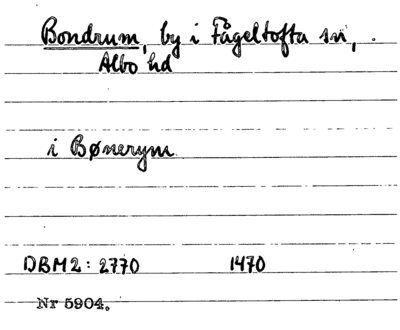 Bondrum, by i Fågeltofta sn,
Albo hd
i Bønerym
DBM2: 2770 1470
Nr 5904.